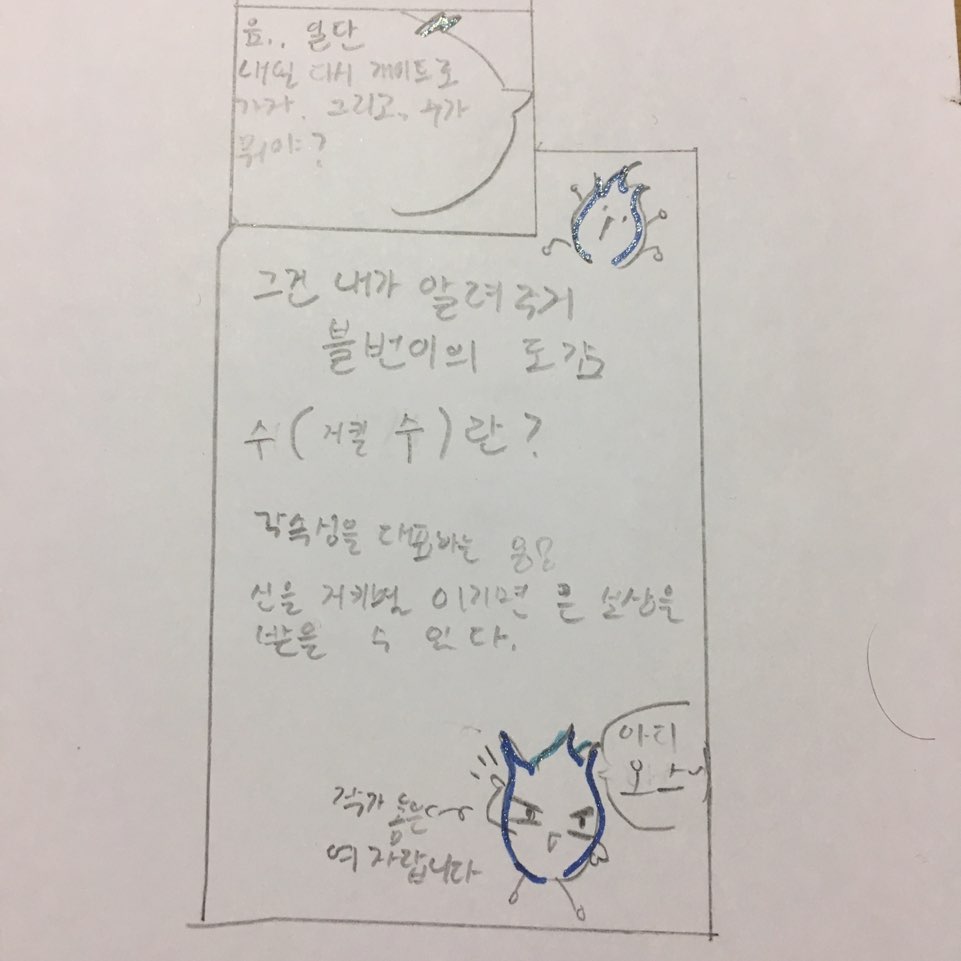 음.. 일단
내일 다시 게이트로
가자. 그리고, 수가
뭐야?
그건 내가 알려주지
불번이의 도감
수(지킬 수)란?
각속성을 대표하는 용
신을 지키며 이기면 큰 보상을
받을 수 있다.
아디
오스~
작가 놈은
여자랍니다